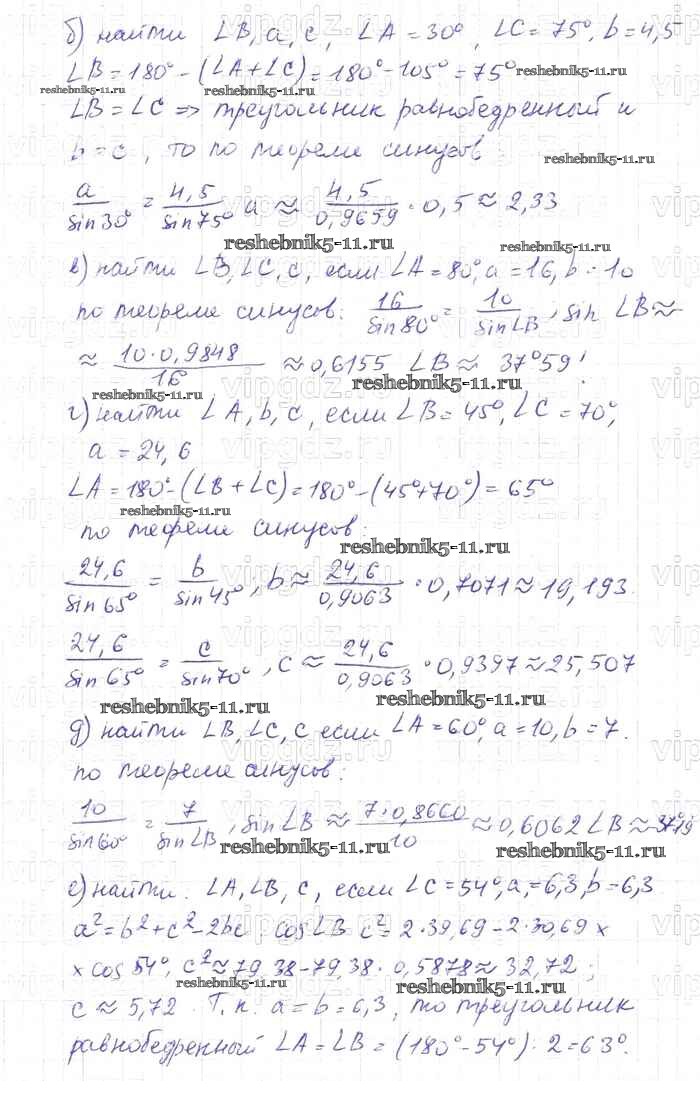 б) найти ∠B, a, c, ∠A = 30°, ∠C = 75°, b = 4,5
∠B = 180° - (∠A + ∠C) = 180° - 105° = 75°
reshebnik5-11.ru
reshebnik5-11.ru
reshebnik5-11.ru
∠B = ∠C => треугольник равнобедренный и
b = c, то по теореме синусов
reshebnik5-11.ru
a/sin30° = 4,5/sin75° a ≈ 4,5/0,9659 · 0,5 ≈ 2,33
reshebnik5-11.ru
в) найти ∠B, ∠C, c, если ∠A = 80°, a = 16, b = 10
по теореме синусов: 16/sin80° = 10/sin∠B, sin ∠B ≈
≈ 10·0,9848/16 ≈ 0,6155 ∠B ≈ 37°59'
reshebnik5-11.ru
reshebnik5-11.ru
г) найти ∠A, b, c, если ∠B = 45°, ∠C = 70°,
a = 24,6
∠A = 180° - (∠B + ∠C) = 180° - (45° + 70°) = 65°
reshebnik5-11.ru
по теореме синусов:
reshebnik5-11.ru
24,6/sin65° = b/sin45°, b ≈ 24,6/0,9063 · 0,7071 ≈ 19,193.
24,6/sin65° = c/sin70°, c ≈ 24,6/0,9063 · 0,9397 ≈ 25,507
reshebnik5-11.ru
reshebnik5-11.ru
д) найти ∠B, ∠C, c если ∠A = 60°, a = 10, b = 7.
по теореме синусов:
10/sin60° = 7/sin∠B, sin∠B ≈ 7·0,8660/10 ≈ 0,6062 ∠B ≈ 37°19
reshebnik5-11.ru
reshebnik5-11.ru
е) найти: ∠A, ∠B, c, если ∠C = 54°, a = 6,3, b = 6,3
a² = b² + c² - 2bc cos∠B c² = 2·39,69 - 2·30,69 ×
× cos 54°, c² ≈ 79,38 - 79,38 · 0,5878 ≈ 32,72;
reshebnik5-11.ru
reshebnik5-11.ru
c ≈ 5,72. Т.к. a = b = 6,3, то треугольник
равнобедренный ∠A = ∠B = (180° - 54°) : 2 = 63°.